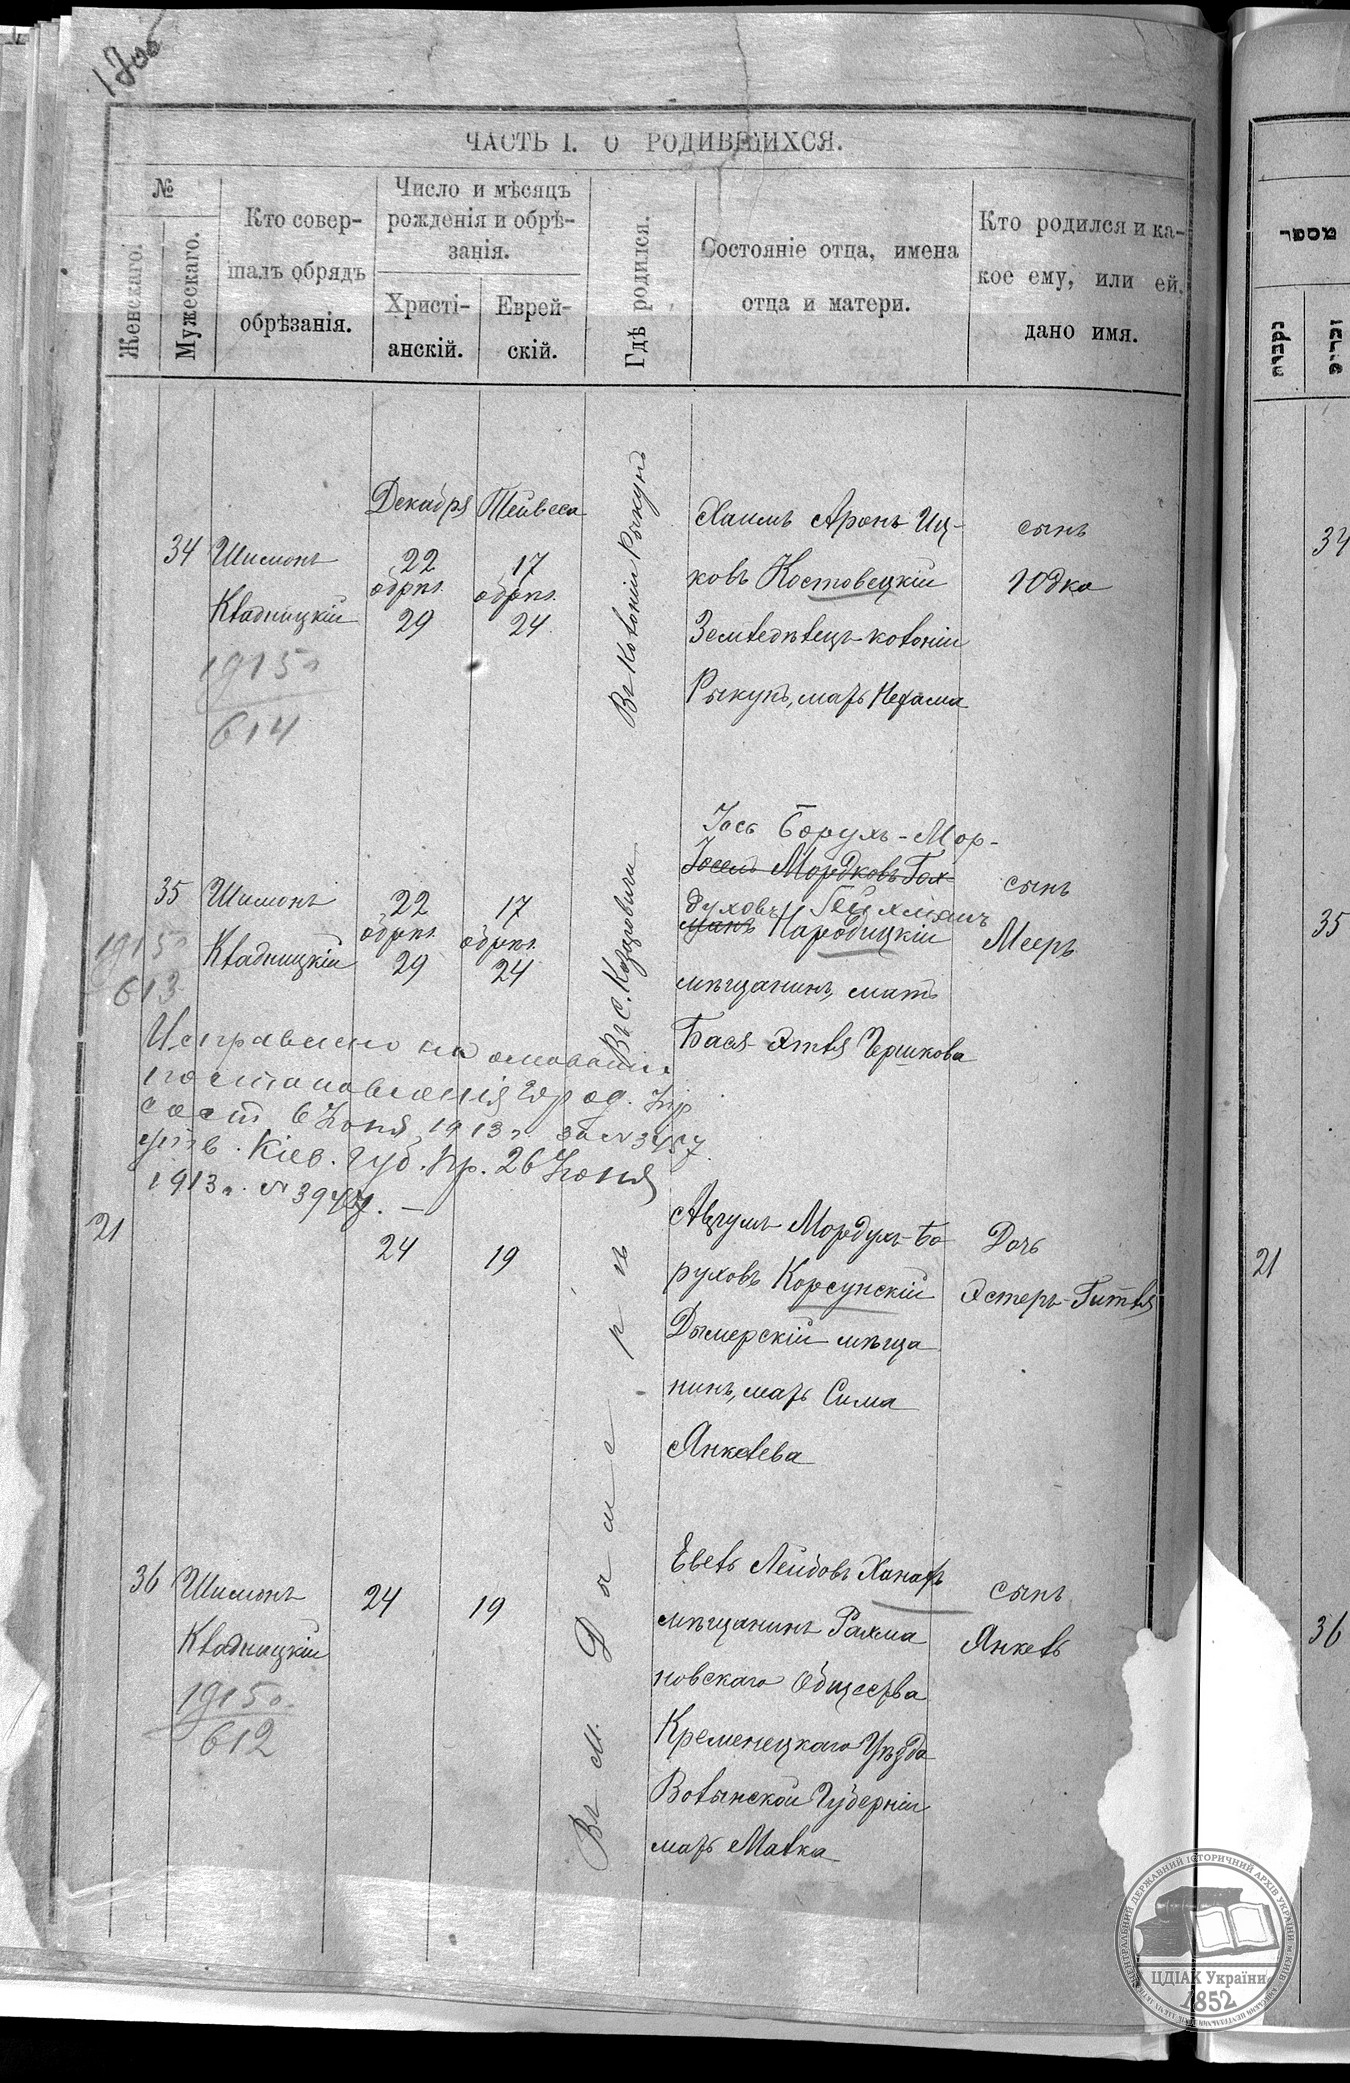 170об
ЧАСТЬ I. О РОДИВШИХСЯ.
№
Женскаго.
Мужескаго.
Кто совер-
шалъ обрядъ
обрѣзанія.
Число и мѣсяцъ
рожденія и обрѣ-
занія.
Христі-
анскій.
Еврей-
скій.
Гдѣ родился.
Состояніе отца, имена
отца и матери.
Кто родился и ка-
кое ему, или ей,
дано имя.
34
Шимонъ
Квадницкій
1915 г.
614
Декабря
22
обрѣз.
29
Тейвеса
17
обрѣз.
24
Въ Колоніи Рыкунъ
Хаимъ Аронъ Иц-
ковъ Костовецкій
Земледѣлецъ колоніи
Рыкунъ, мать Нехама
сынъ
Юдко
35
1915 г.
613
Шимонъ
Квадницкій
22
обрѣз.
29
17
обрѣз.
24
Въ с. Козаровичи
Іось Борухъ-Мор-
Іосель Мордковъ Гой-
духовъ Гейхманъ
манъ Народицкій
мѣщанинъ, мать
Бася-Этля Гершкова
сынъ
Мееръ
Исправлено на основаніи
постановленія Город.
сост. 6 Іюня 1913 г. за №
утв. Кіев. Губ. Пр. 26 Іюня
1913 г. №
21
24
19
Мордухъ-Бо-
руховъ Корсунскій
Дымерскій мѣща
нинъ, мать Сима
Янкелева
Дочь
Эстеръ-Гитля
36
Шимонъ
Квадницкій
1915 г.
612
24
19
Въ м. Дымерѣ
Евель Лейбовъ Ханафъ
мѣщанинъ Рахма
новскаго Общества
Кременецкаго Уѣзда
Волынской Губерніи
мать Малка
сынъ
Янкель
מספר
נקבות
זכרים
34
35
21
36
ЦЕНТРАЛЬНИЙ ДЕРЖАВНИЙ ІСТОРИЧНИЙ АРХІВ УКРАЇНИ М.КИЇВ
ЦДІАК України
1852